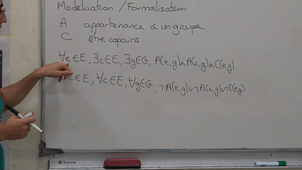 Modélisation / Formalisation
A appartenance à un groupe
C être copains.
∀e∈E, ∃c∈E, ∃g∈G, A(e,g)∧A(c,g)∧C(e,g)
∈E, ∀c∈E, ∀g∈G, ¬A(e,g)∨¬A(c,g)∨¬C(e,g)